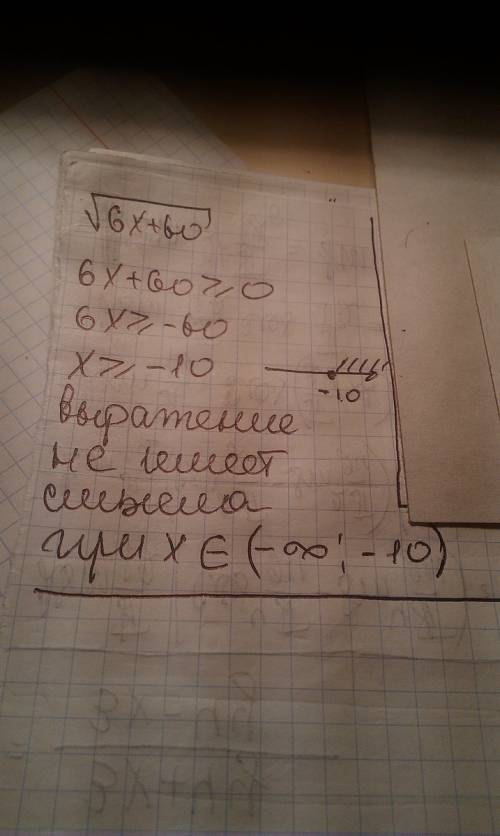 √6x+60
6x+60⩾0
6x⩾-60
x⩾-10
-10
выражение
не имеет
смысла
при x ∈ (-∞; -10)